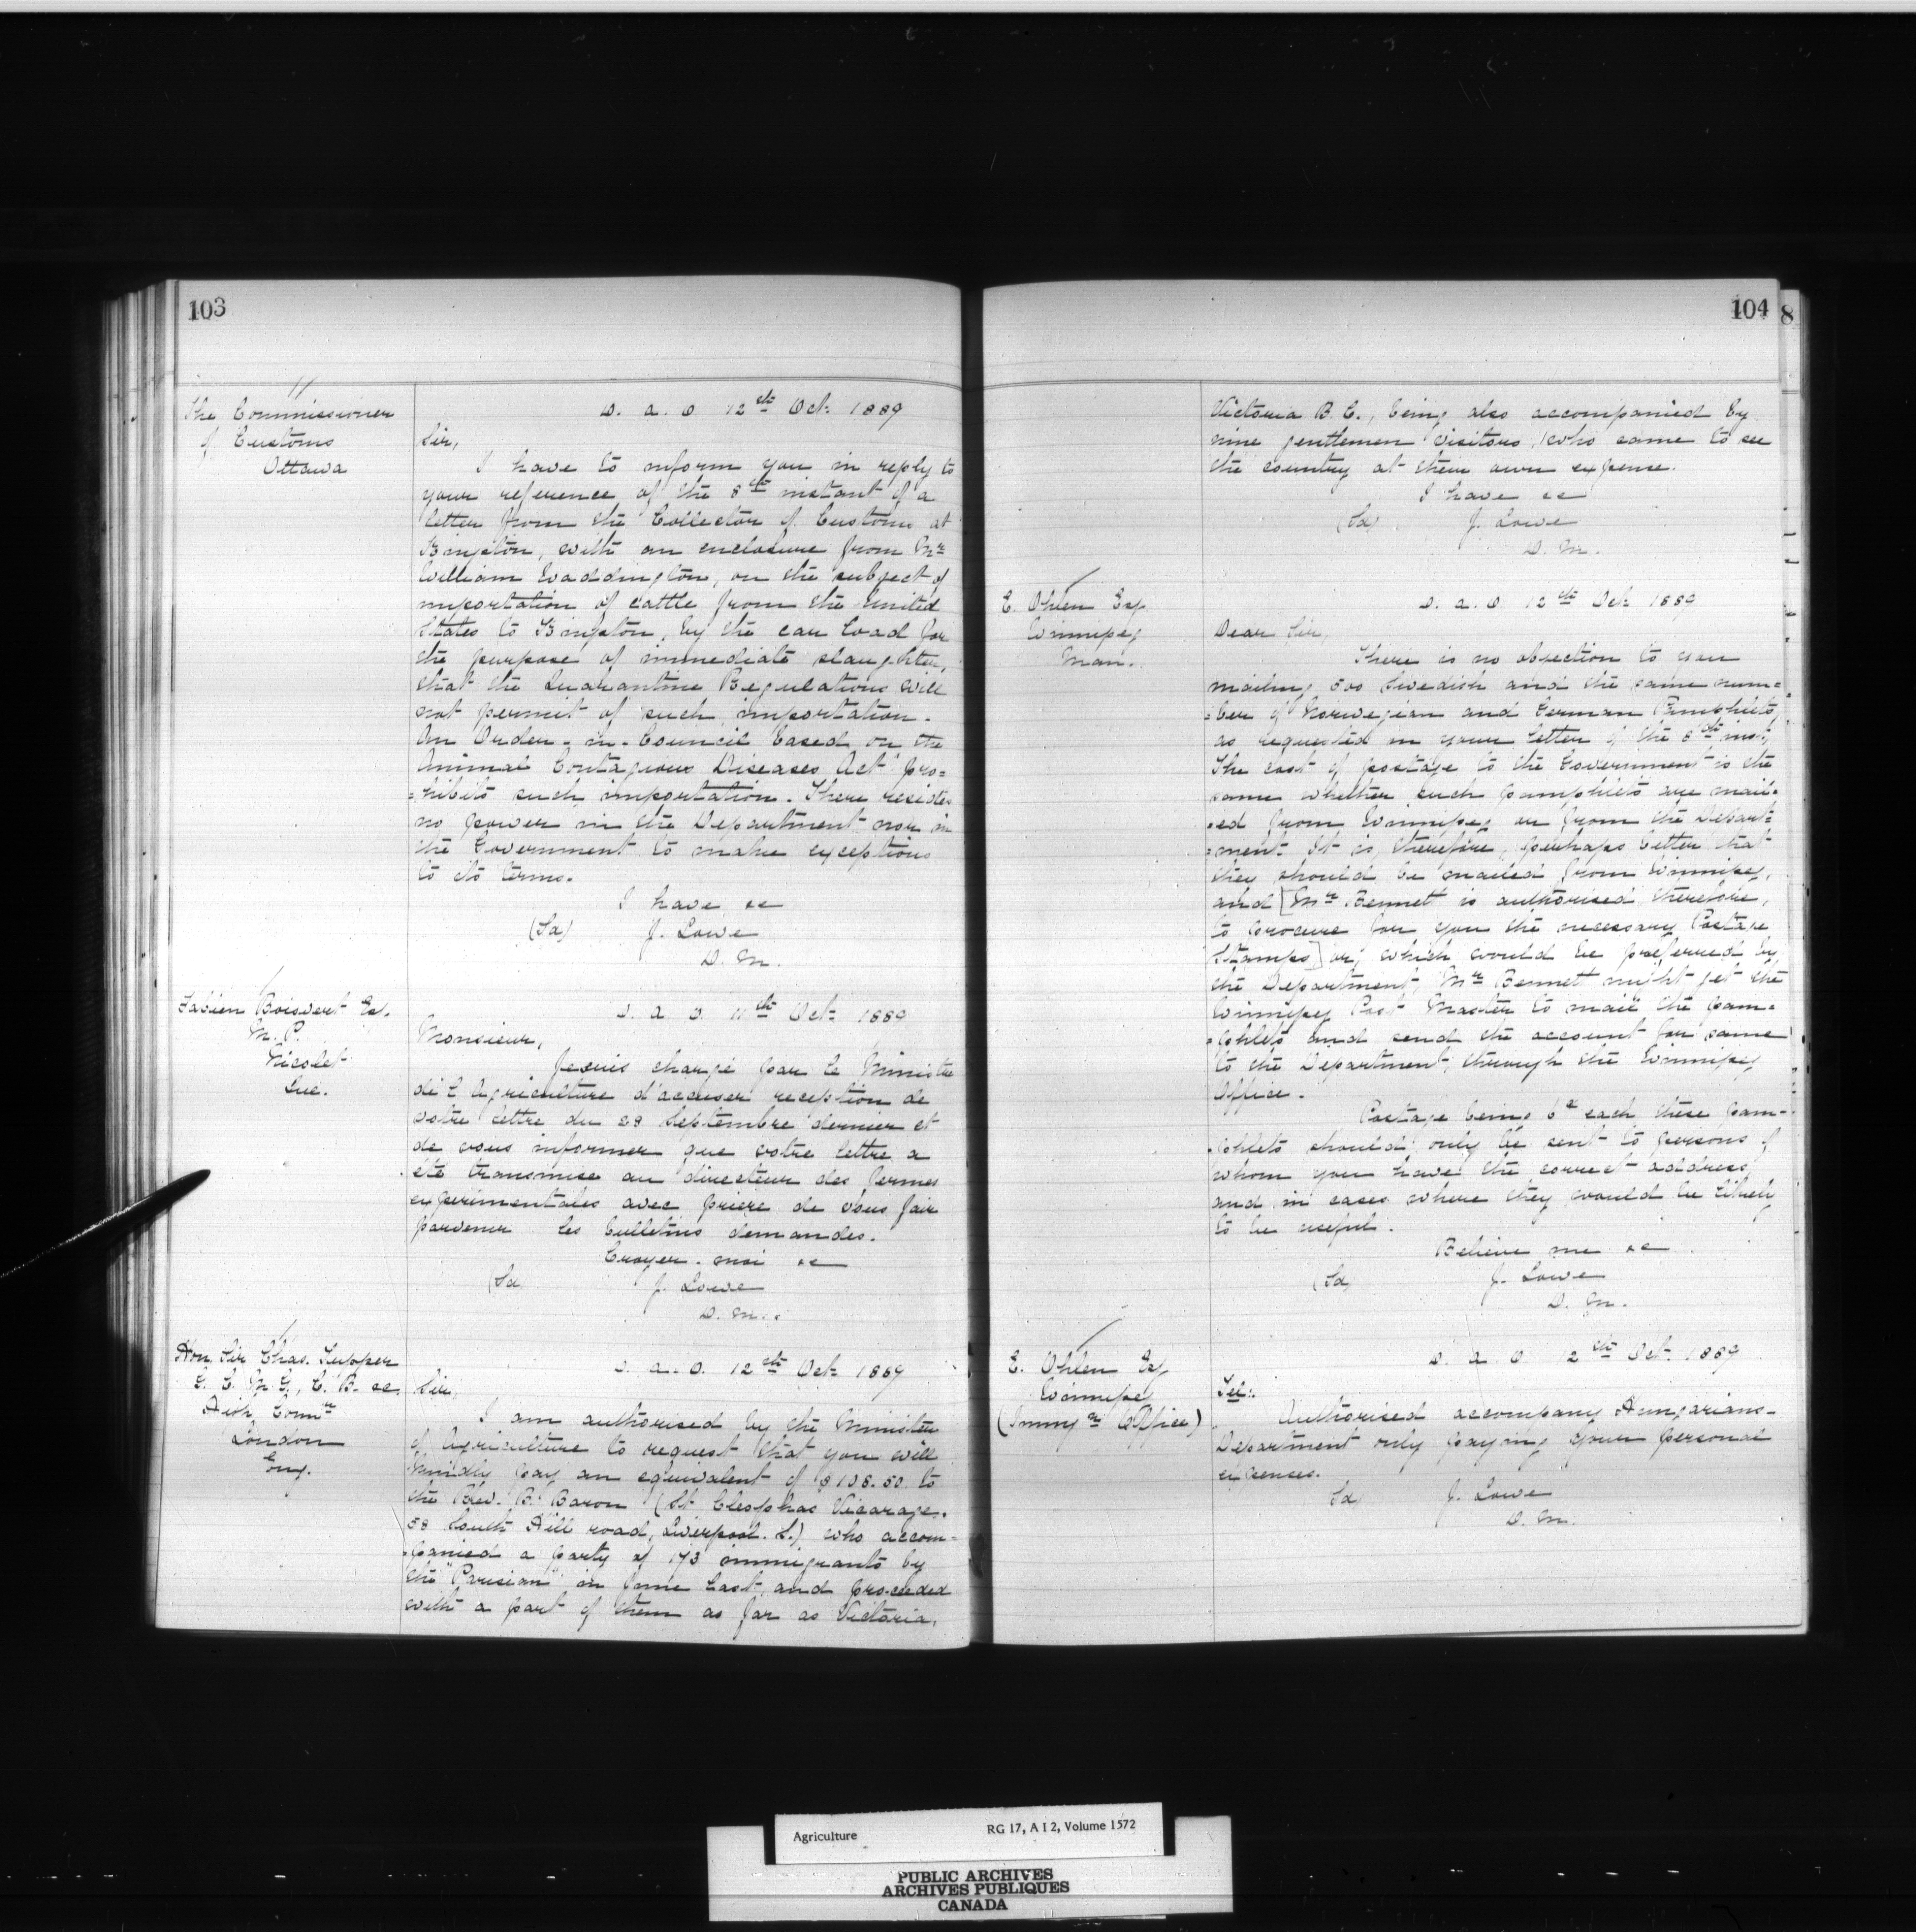 103
The Commissioner
of Customs
Ottawa
D. A. O 12th Oct: 1889
Sir,
I have to inform you in reply to
your reference of the 8th instant of a
letter from the Collector of Customs at
Kingston, with an enclosure from Mr
William Waddington, on the subject of
importation of cattle from the United
States to Kingston, by the car load for
the purpose of immediate slaughter,
that the Quarantine Regulations will
not permit of such importation.
An Order-in-Council based on the
Animal Contagious Diseases Act pro=
=hibits such importation. There resides
no power in the Department nor in
the Government to make exceptions
to its terms.
I have &c
(Sd) J. Lowe
D. M.
Fabien Boisvert Esq.
M. P.
Nicolet
Que.
D. A. O. 11th Oct: 1889
Monsieur,
Je suis chargé par le Ministre
de l'Agriculture d'accuser reception de
votre lettre du 28 Septembre dernier et
de vous informer que votre lettre a
été transmise au directeur des fermes
experimentales avec priere de vous fair
parvenir les bulletins demandes.
Croyez-moi &c
(Sd) J. Lowe
D. M.
Hon. Sir Chas. Tupper
G. C. M. G., C. B. &c.
High Comr
London
Eng.
D. A. O. 12th Oct: 1889
Sir,
I am authorised by the Minister
of Agriculture to request that you will
kindly pay an equivalent of $108.50 to
the Rev. B. Baron (St Cleophas Vicarage.
58 South Hill road, Liverpool. S.) who accom=
=panied a party of 173 immigrants by
the "Parisian" in June last, and proceeded
with a part of them as far as Victoria,
104
8
Victoria B. C., being also accompanied by
nine gentlemen visitors, who came to see
the country at their own expense.
I have &c
(Sd) J. Lowe
D. M.
E. Ohlen Esq
Winnipeg
Man.
D. A. O 12th Oct: 1889
Dear Sir,
There is no objection to you
mailing 500 Swedish and the same num=
=ber of Norwegian and German Pamphlets
as requested in your letter of the 8th inst;
The cost of postage to the Government is the
same whether such pamphlets are mail=
=ed from Winnipeg or from the Depart=
=ment. It is, therefore, perhaps better that
they should be mailed from Winnipeg,
and [Mr Bennett is authorised therefore,
to procure for you the necessary Postage
Stamps] or, which would be preferred by
the Department, Mr Bennett might get the
Winnipeg Post Master to mail the pam=
=phlets and send the account for same
to the Department, through the Winnipeg
Office.
Postage being 6c each, these pam-
=phlets should only be sent to persons of
whom you have the correct address,
and in cases where they would be likely
to be useful.
Believe me &c
(Sd) J. Lowe
D. M.
E. Ohlen Esq
Winnipeg
(Immgn Office)
D. A. O 12th Oct. 1889
Tel:.
Authorised accompany Hungarians-
Department only paying your personal
expenses.
Sd) J. Lowe
D. M.
Agriculture RG 17, A I 2, Volume 1572
PUBLIC ARCHIVES
ARCHIVES PUBLIQUES
CANADA